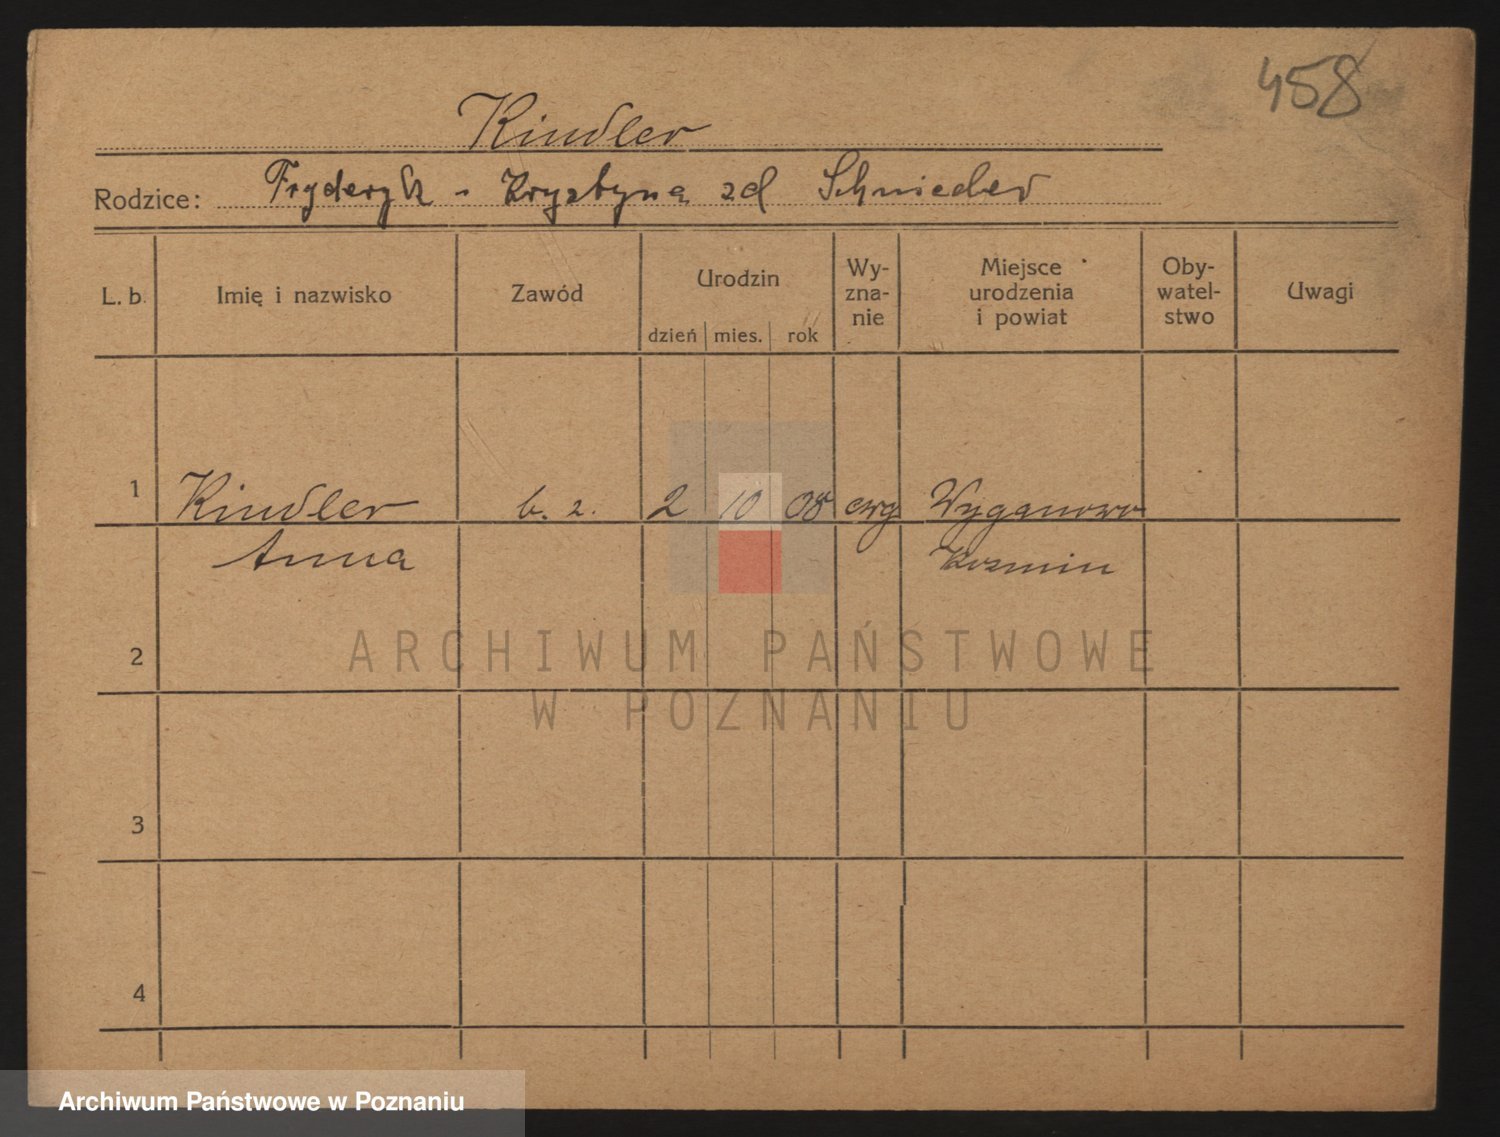 458
Kindler
Rodzice: Fryderyk - Krystyna zd Schnieder
L. b. Imię i nazwisko Zawód Urodzin dzień mies. rok Wy-zna-nie Miejsce urodzenia i powiat Oby-watel-stwo Uwagi
1 Kindler b. z. 2 10 08 ewg Wyganowo
Anna Kozmin
2
ARCHIWUM PAŃSTWOWE
W POZNANIU
3
4
Archiwum Państwowe w Poznaniu